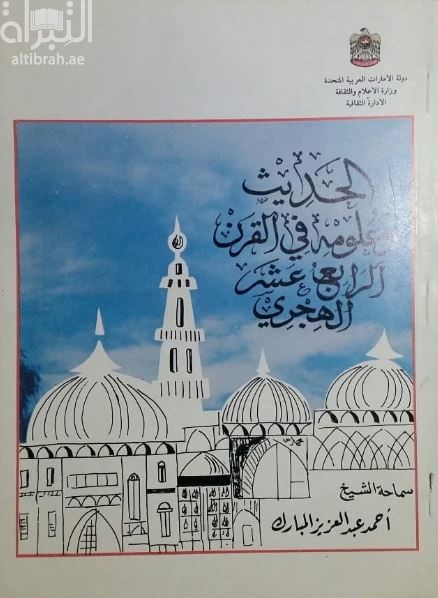 التبراة
altibrah.ae
دولة الامارات العربية المتحدة
وزارة الاعلام والثقافة
الادارة الثقافية
الحديث
وعلومه في القرن
الرابع عشر
الهجري
سماحة الشيخ
أحمد عبد العزيز المبارك